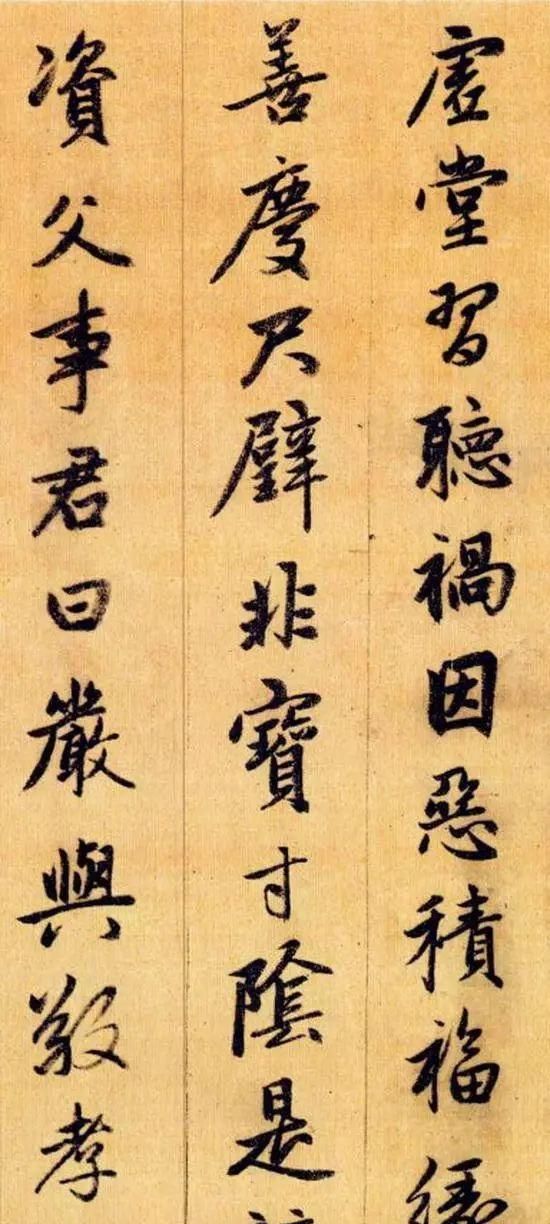 虚堂習聽禍因惡積福緣
善慶尺璧非寶寸陰是
資父事君曰嚴與敬孝